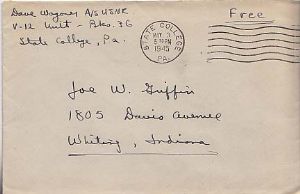 Dave Wagoner A/S USNR
V-12 Unit - Bks. 36
State College, Pa.
STATE COLLEGE
PM
1945
PA.
Free
Joe W. Griffin
1805 Davis Avenue
Whiting, Indiana